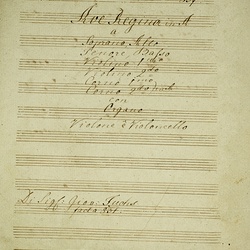 Ave Regina in A
a
Soprano Alto
Tenore Basso
Violino 1mo
Violino 2do
Corno 1mo
Corno 2do in A
con
Organo
Violone è Violoncello
Del Sigl: Giov: